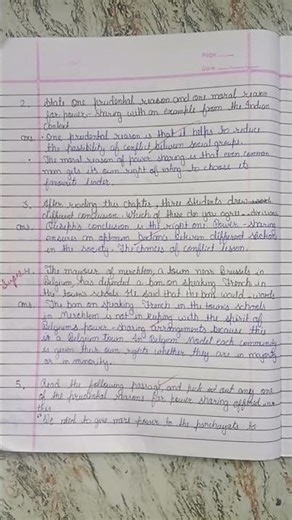 PAGE
DATE
2. State One prudential reason and one moral reason
for power-sharing with an example from the Indian
context
ans • One prudential reason is that it helps to reduce
the possibility of conflict between social groups.
• The moral reason of power sharing is that even common
man gets its own right of voting to choose its
favourite leader.
3. After reading this chapter, three students drew
different conclusion. Which of these do you agree
ans. conclusion is the right one. Power-sharing
ensures an optimum balance between different sections
in the society. The chances of conflict lessen.
4. The mayor of Merchtem, a town near Brussels in
Belgium, has defended a ban on speaking French in
the towns schools. He said that the ban would
ans The ban on speaking French in the towns schools
in Merchtem is not in keeping with the spirit of
Belgium's power-sharing arrangements because this
is a Belgium town. In Belgium Model each community
is given their own rights whether they are in majority
or in minority.
5. Read the following passage and pick out any one
of the prudential reasons for power sharing offered in
this
"We need to give more power to the panchayats to